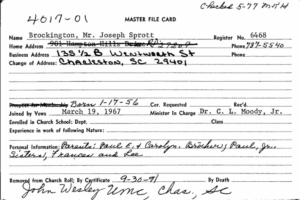 Checked 5-77 MRH
4017-01
MASTER FILE CARD
Name Brockington, Mr. Joseph Sprott Register No. 6468
Home Address 901 Hampton Hills Phone 787-5540
135½ B Wentworth St
Change of Address: Charleston, SC 29401
Born 1-17-56 Cer. Requested Rec'd.
Joined by Vows March 19, 1967 Minister In Charge Dr. C. L. Moody, Jr.
Enrolled in Church School: Dept. Class
Experience in work of following Nature:
Personal Information: Parents: Paul E. & Carolyn. Brother, Paul, Jr.
Sisters, Frances and Lee
Removed from Church Roll: By Certificate 9-30-91 By Death
John Wesley UMC, Chas., SC